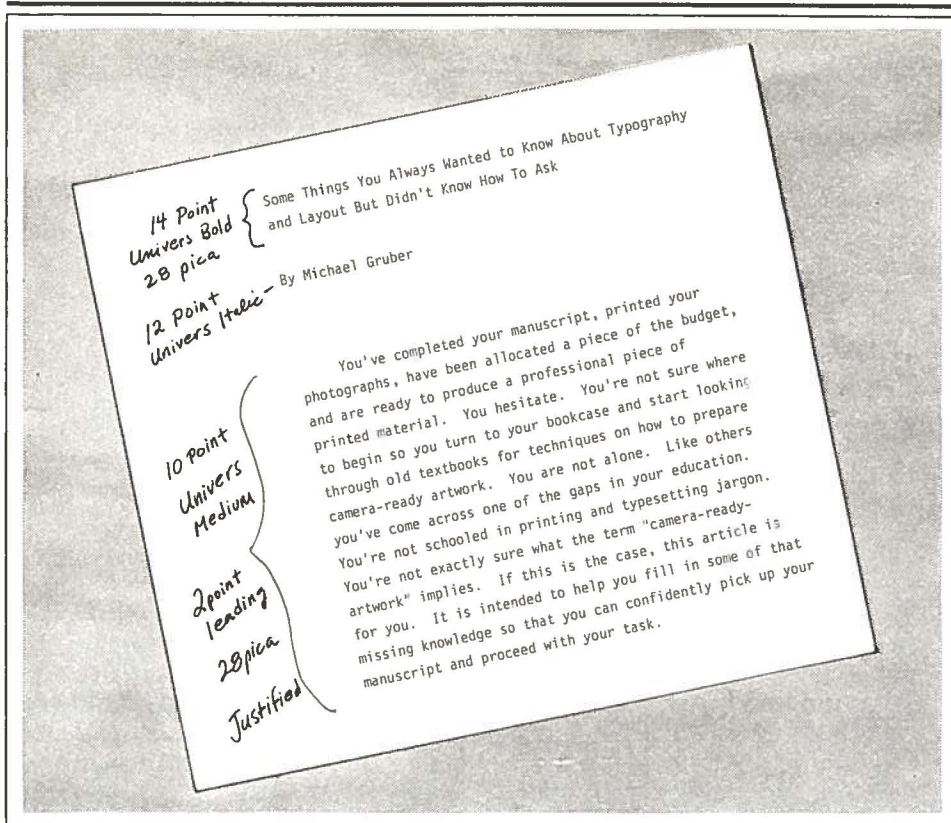 14 Point
Univers Bold
28 pica
Some Things You Always Wanted to Know About Typography
and Layout But Didn't Know How To Ask
12 Point
Univers Italic
By Michael Gruber
You've completed your manuscript, printed your
photographs, have been allocated a piece of the budget,
and are ready to produce a professional piece of
printed material. You hesitate. You're not sure where
to begin so you turn to your bookcase and start looking
through old textbooks for techniques on how to prepare
camera-ready artwork. You are not alone. Like others
you've come across one of the gaps in your education.
You're not schooled in printing and typesetting jargon.
You're not exactly sure what the term "camera-ready-
artwork" implies. If this is the case, this article is
for you. It is intended to help you fill in some of that
missing knowledge so that you can confidently pick up your
manuscript and proceed with your task.
10 Point
Univers
Medium
2 point
leading
28 pica
Justified